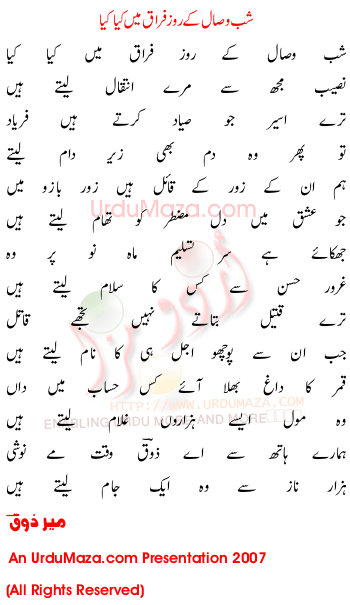 شب وصال کے روز فراق میں کیا کیا
شب وصال کے روز فراق میں کیا کیا
نصیب مجھ سے مرے انتقال لیتے ہیں
ترے اسیر جو صیاد کرتے ہیں فریاد
تو پھر وہ دم بھی زیر دام لیتے
ہم ان کے زور کے قائل ہیں زور بازو میں
UrduMaza.com
جو عشق میں دل مضطر کو تھام لیتے ہیں
جھکائے ہے سر تسلیم ماہ نو پر وہ
غرور حسن سے کس کا سلام لیتے ہیں
ترے قتیل بتاتے نہیں تجھے قاتل
جب ان سے پوچھو اجل ہی کا نام لیتے ہیں
قمر کا داغ بھلا آئے کس حساب میں داں
HTTP://WWW.URDUMAZA.COM
وہ مول ایسے ہزاروں غلام لیتے ہیں
ENABLING URDU MAZA AND MORE
ہمارے ہاتھ سے اے ذوقؔ وقت مے نوشی
ہزار ناز سے وہ ایک جام لیتے ہیں
میر ذوقؔ
An UrduMaza.com Presentation 2007
(All Rights Reserved)